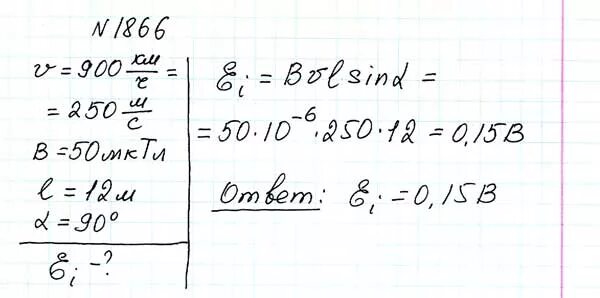 N 1866
v = 900 км/ч =
= 250 м/с
B = 50 мкТл
l = 12 м
α = 90°
Ɛi - ?
Ɛi = Bvl sinα =
= 50·10⁻⁶·250·12 = 0,15 В
Ответ: Ɛi = 0,15 В